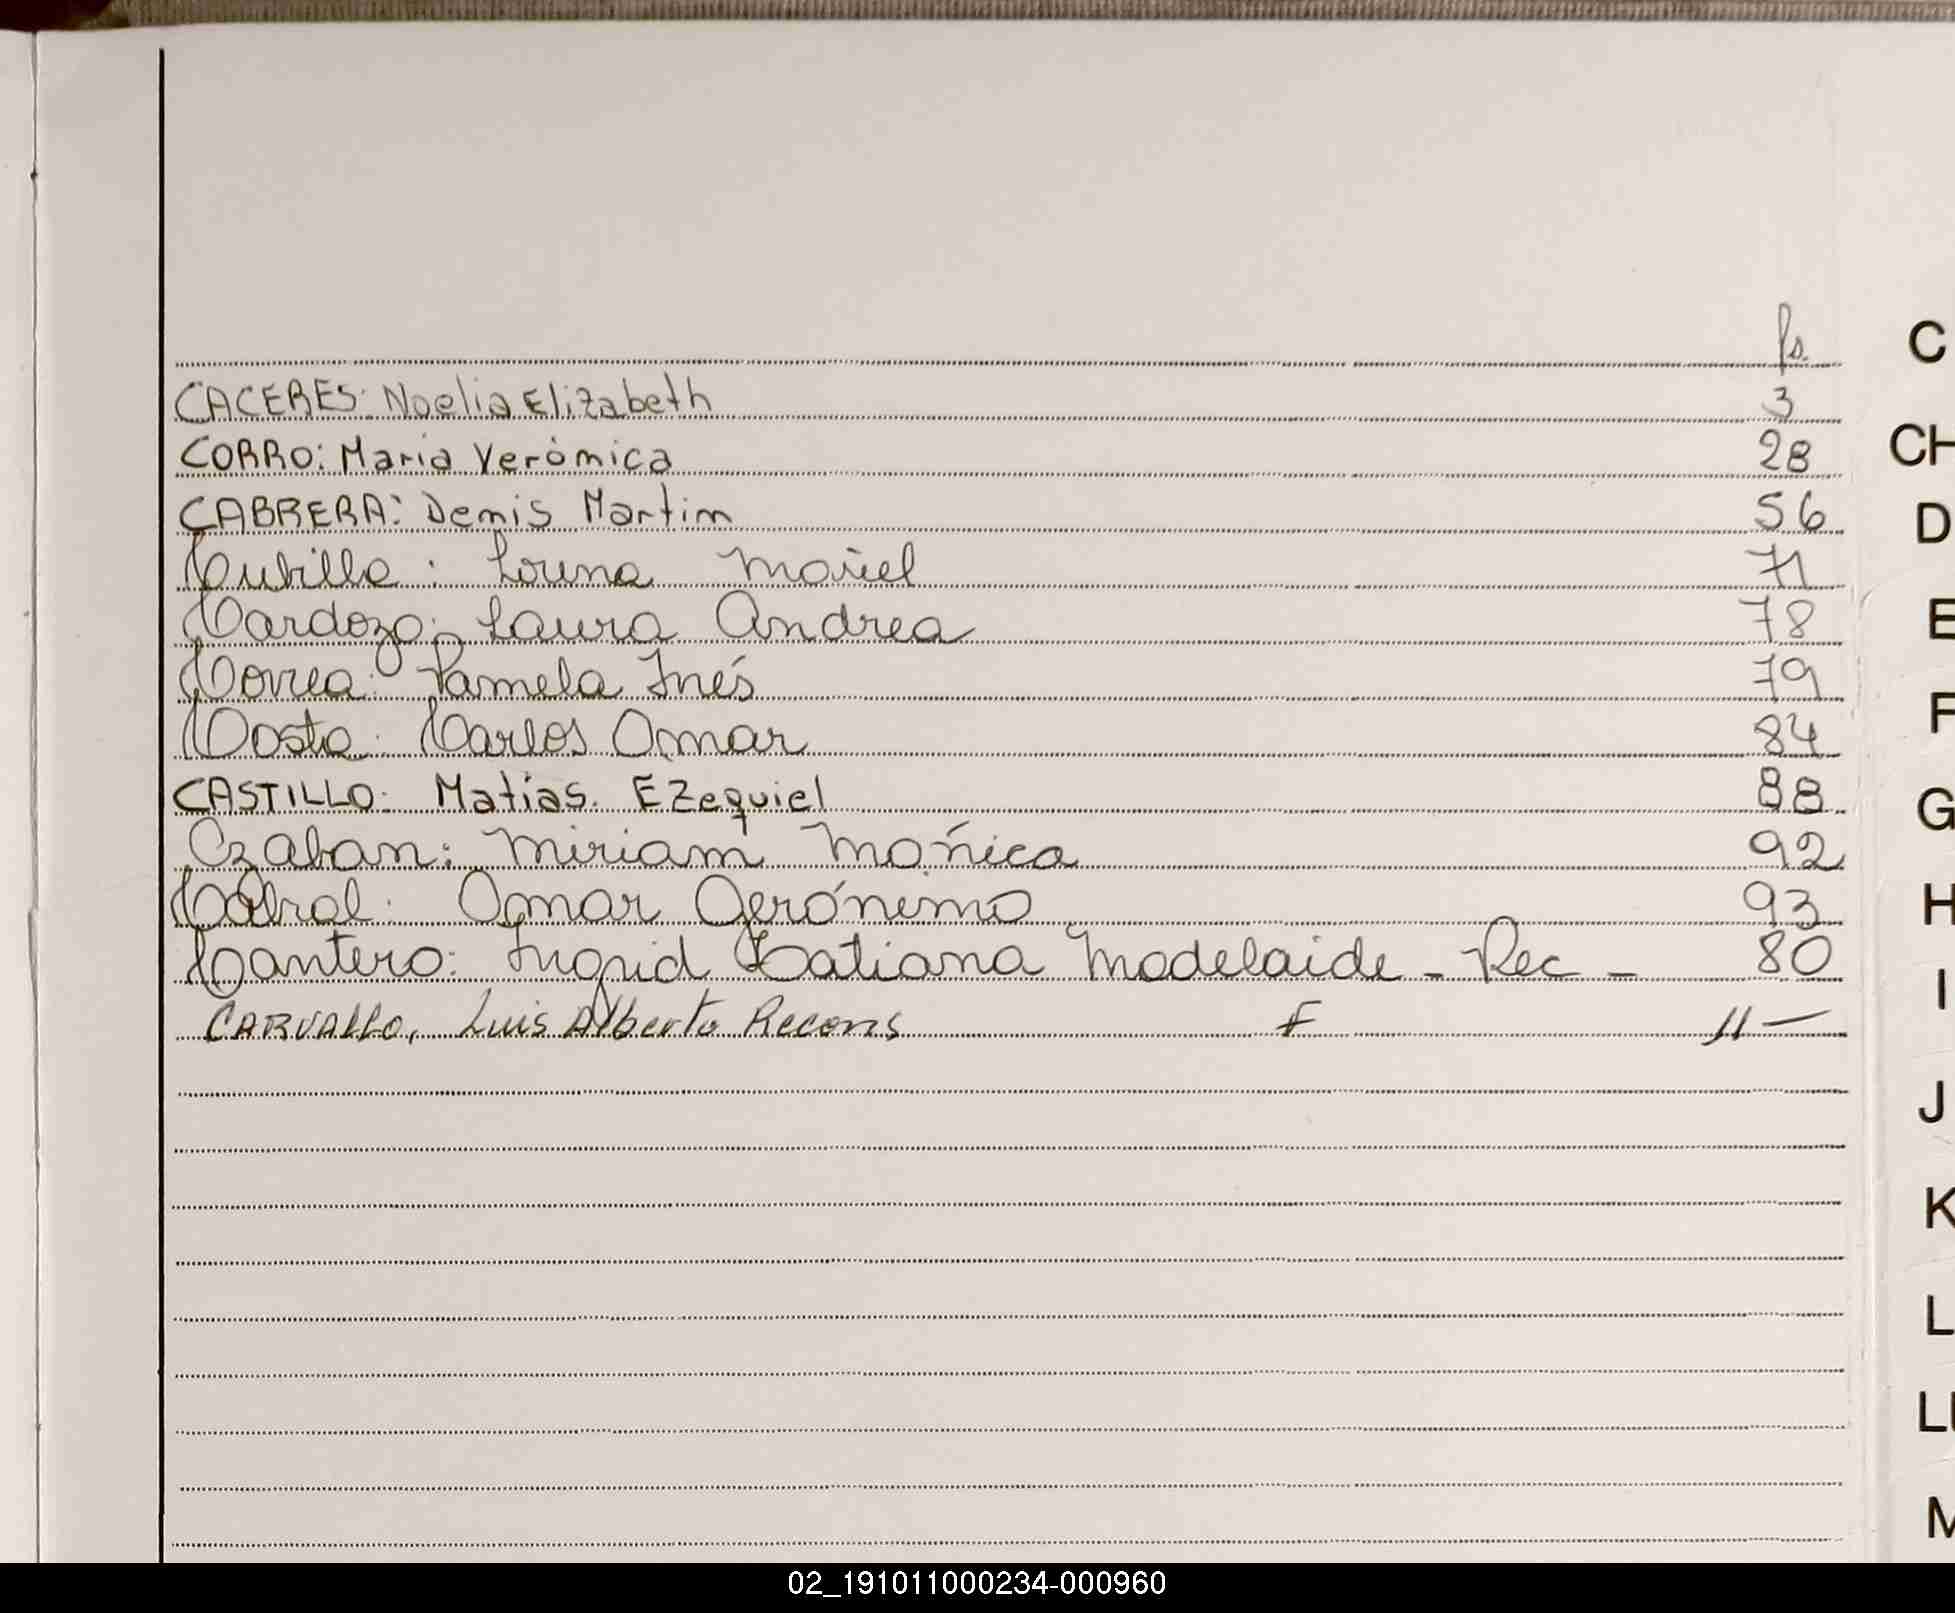 fs.
CACERES: Noelia Elizabeth 3
CORRO: Maria Verónica 28
CABRERA: Denis Martin 56
Cubilla: Lorena Mariel 71
Cardozo: Laura Andrea 78
Correa: Pamela Inés 79
Costa: Carlos Omar 84
CASTILLO: Matias Ezequiel 88
Czaban: Miriam Mónica 92
Cabral: Omar Gerónimo 93
Cantero: Ingrid Tatiana Madelaide - Rec - 80
CARVALLO, Luis Alberto Recons F 11 -
C
CH
D
E
F
G
H
I
J
K
L
LL
M
02_191011000234-000960